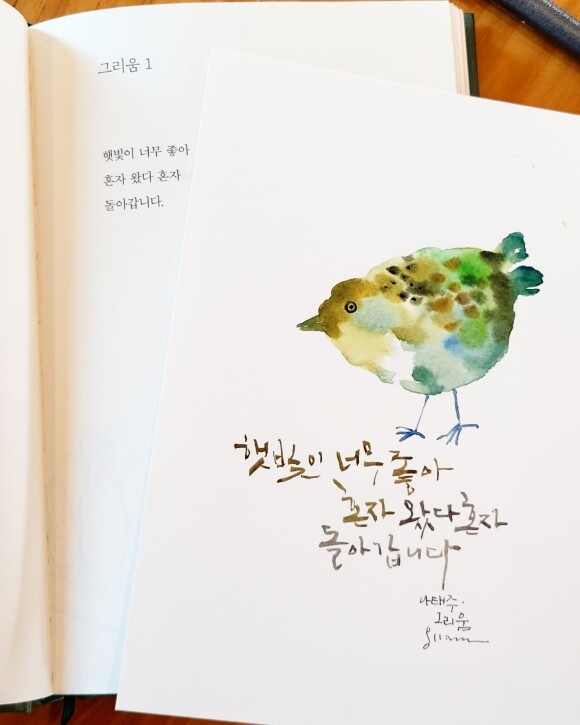 그리움 1
햇빛이 너무 좋아
혼자 왔다 혼자
돌아갑니다.
햇빛이 너무 좋아
혼자 왔다 혼자
돌아갑니다
나태주.
그리움